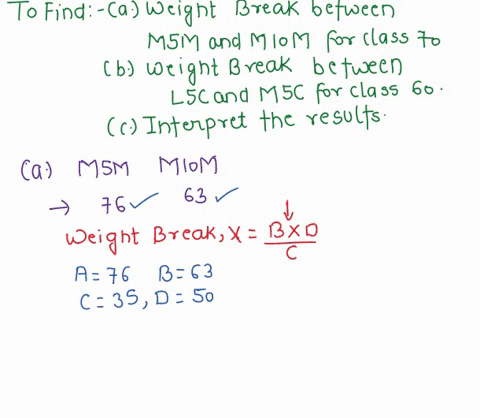 To Find:-(a) Weight Break between
M5M and M10M for class 70
(b) Weight Break between
L5C and M5C for class 60.
(c) Interpret the results.
(a) M5M M10M
→ 76 ✓ 63 ✓
Weight Break, X = B X D / C
A = 76 B = 63
C = 35, D = 50